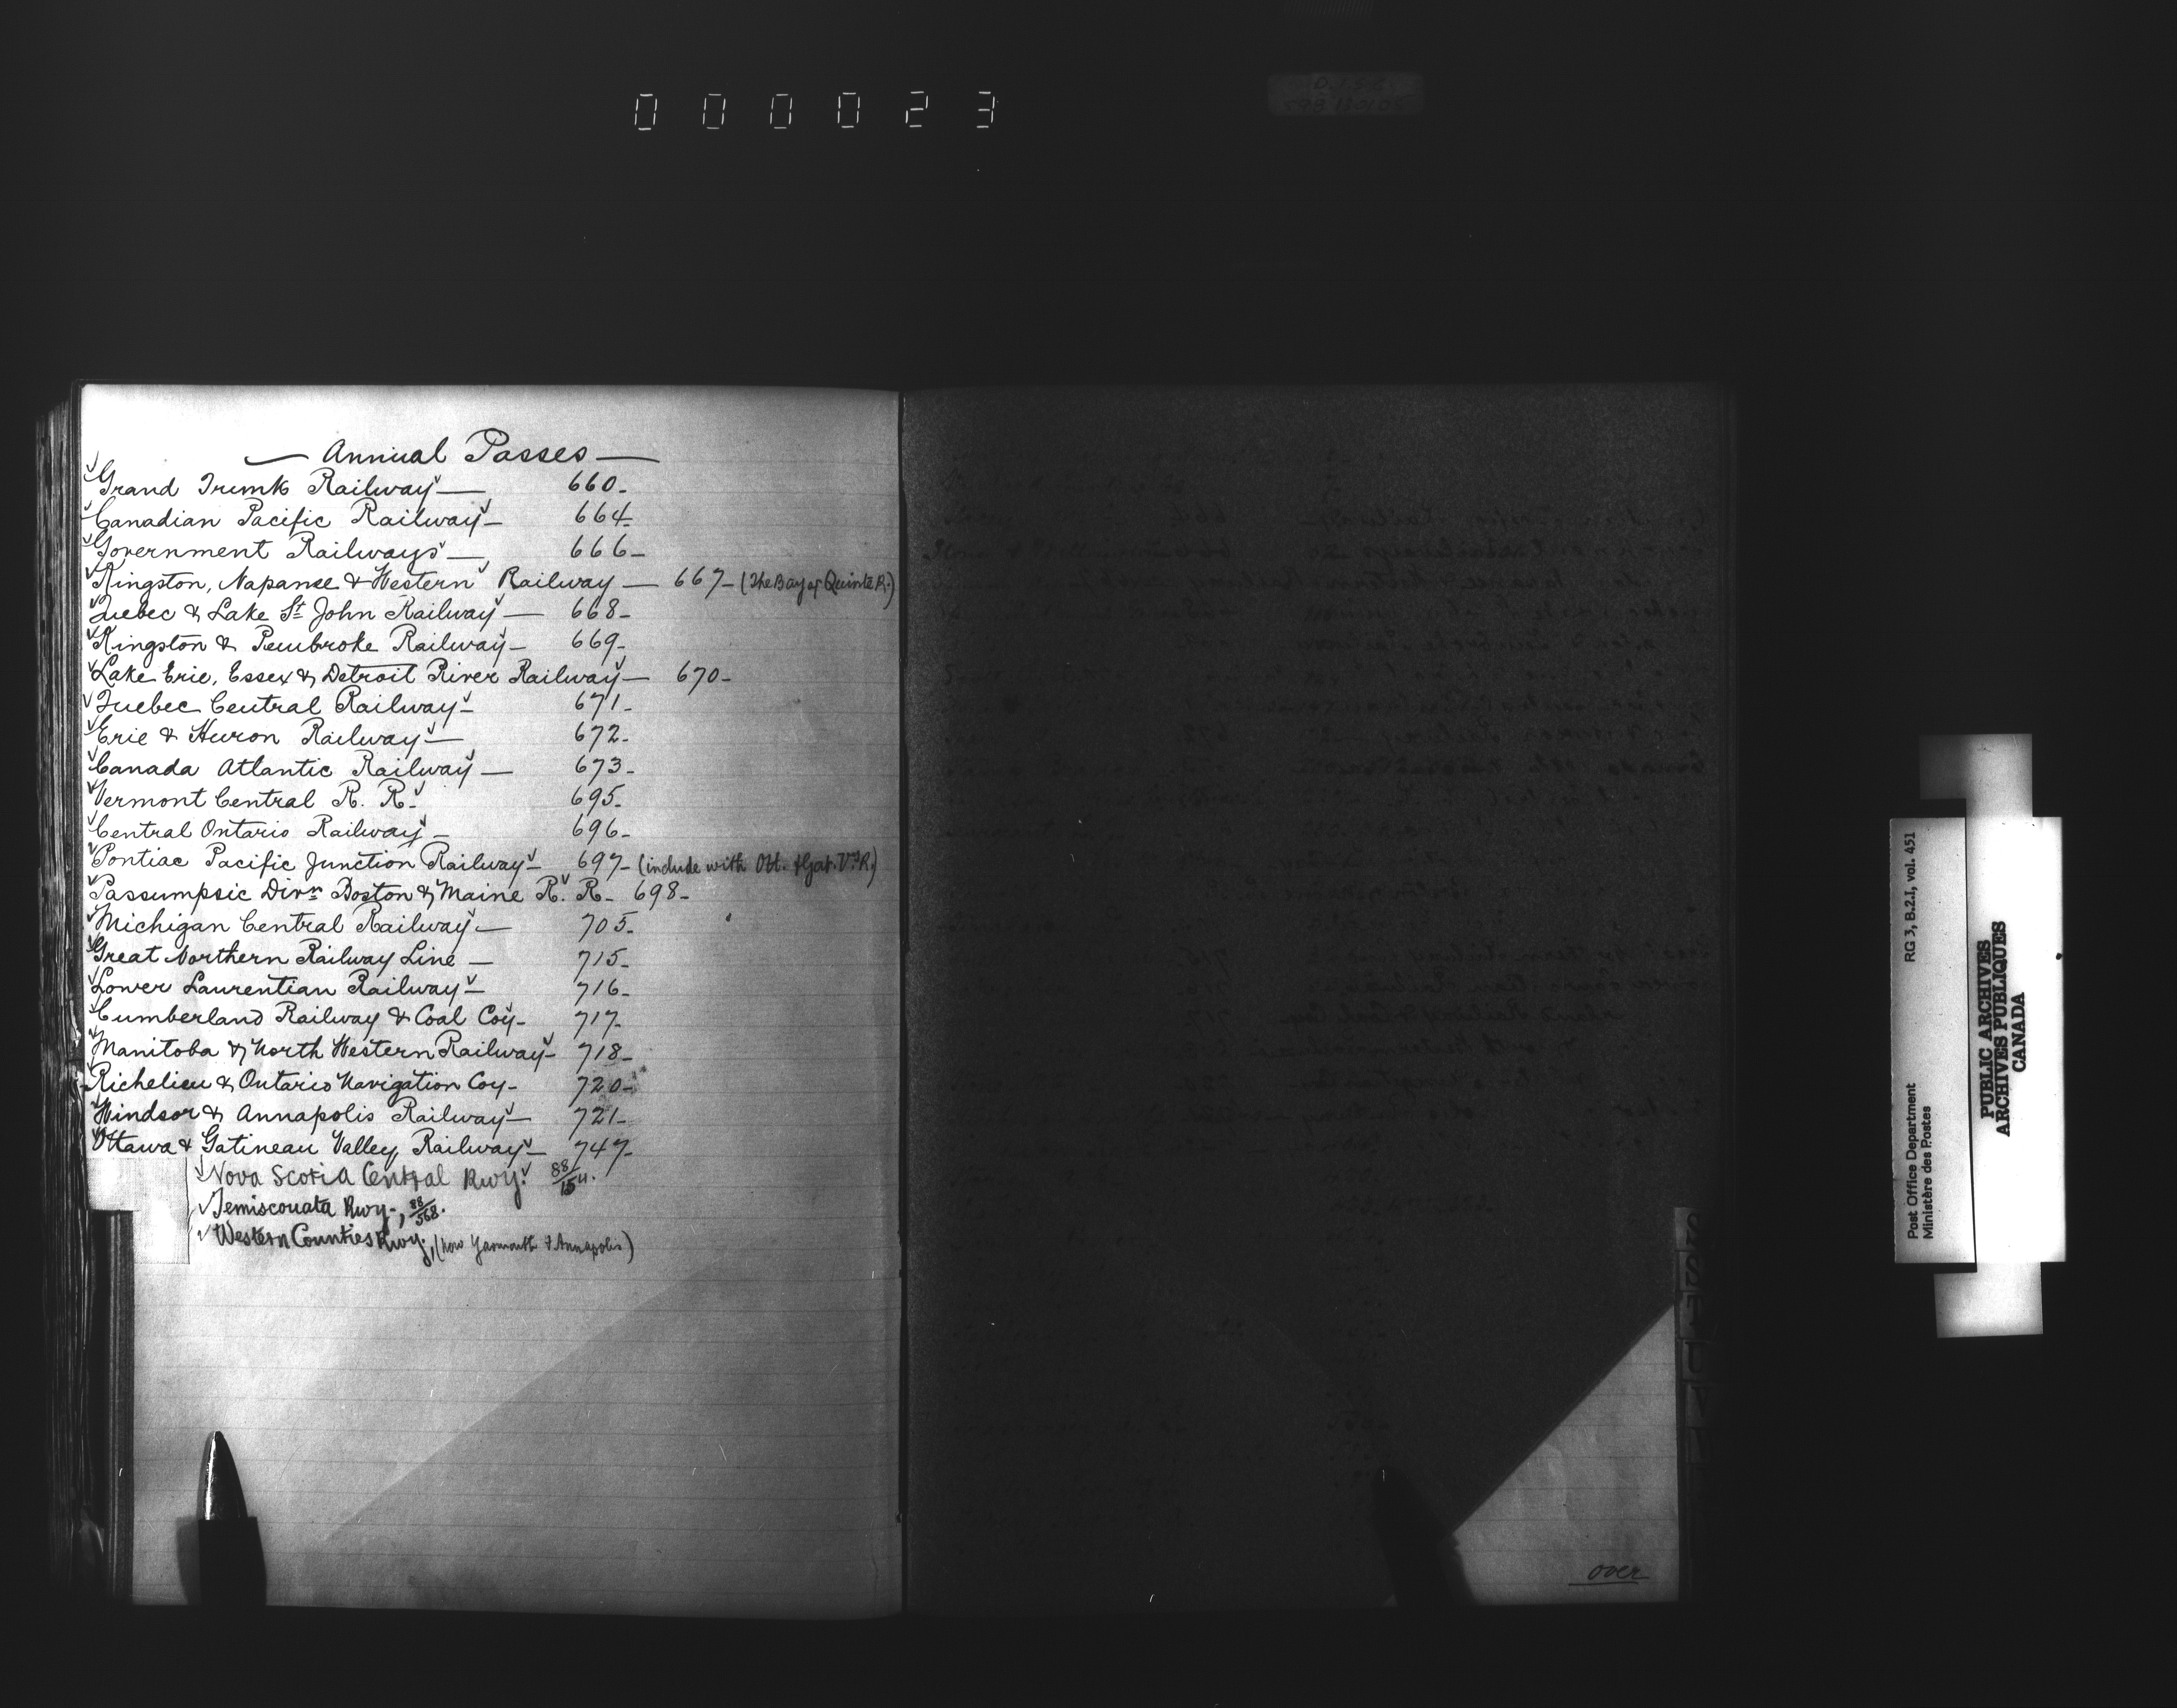 000023
— Annual Passes —
Grand Trunk Railway — 660-
Canadian Pacific Railway - 664-
Government Railways — 666-
Kingston, Napanee & Western Railway — 667- (The Bay of Quinté R.)
Quebec & Lake St John Railway — 668-
Kingston & Pembroke Railway - 669-
Lake Erie, Essex & Detroit River Railway — 670-
Quebec Central Railway - 671-
Erie & Huron Railway — 672-
Canada Atlantic Railway — 673-
Vermont Central R. R. 695-
Central Ontario Railway - 696-
Pontiac Pacific Junction Railway - 697- (include with Ott. & Gat. Vy R.)
Passumpsic Divn Boston & Maine R. R. 698-
Michigan Central Railway — 705-
Great Northern Railway Line — 715-
Lower Laurentian Railway - 716-
Cumberland Railway & Coal Coy- 717-
Manitoba & North Western Railway - 718-
Richelieu & Ontario Navigation Coy- 720-
Windsor & Annapolis Railway — 721-
Ottawa & Gatineau Valley Railway - 747-
Nova Scotia Central Rwy.
Temiscouata Rwy-, 88/568.
Western Counties Rwy, (now Yarmouth & Annapolis)
over
Post Office Department
Ministère des Postes
RG 3, B.2.I, vol. 451
PUBLIC ARCHIVES
ARCHIVES PUBLIQUES
CANADA